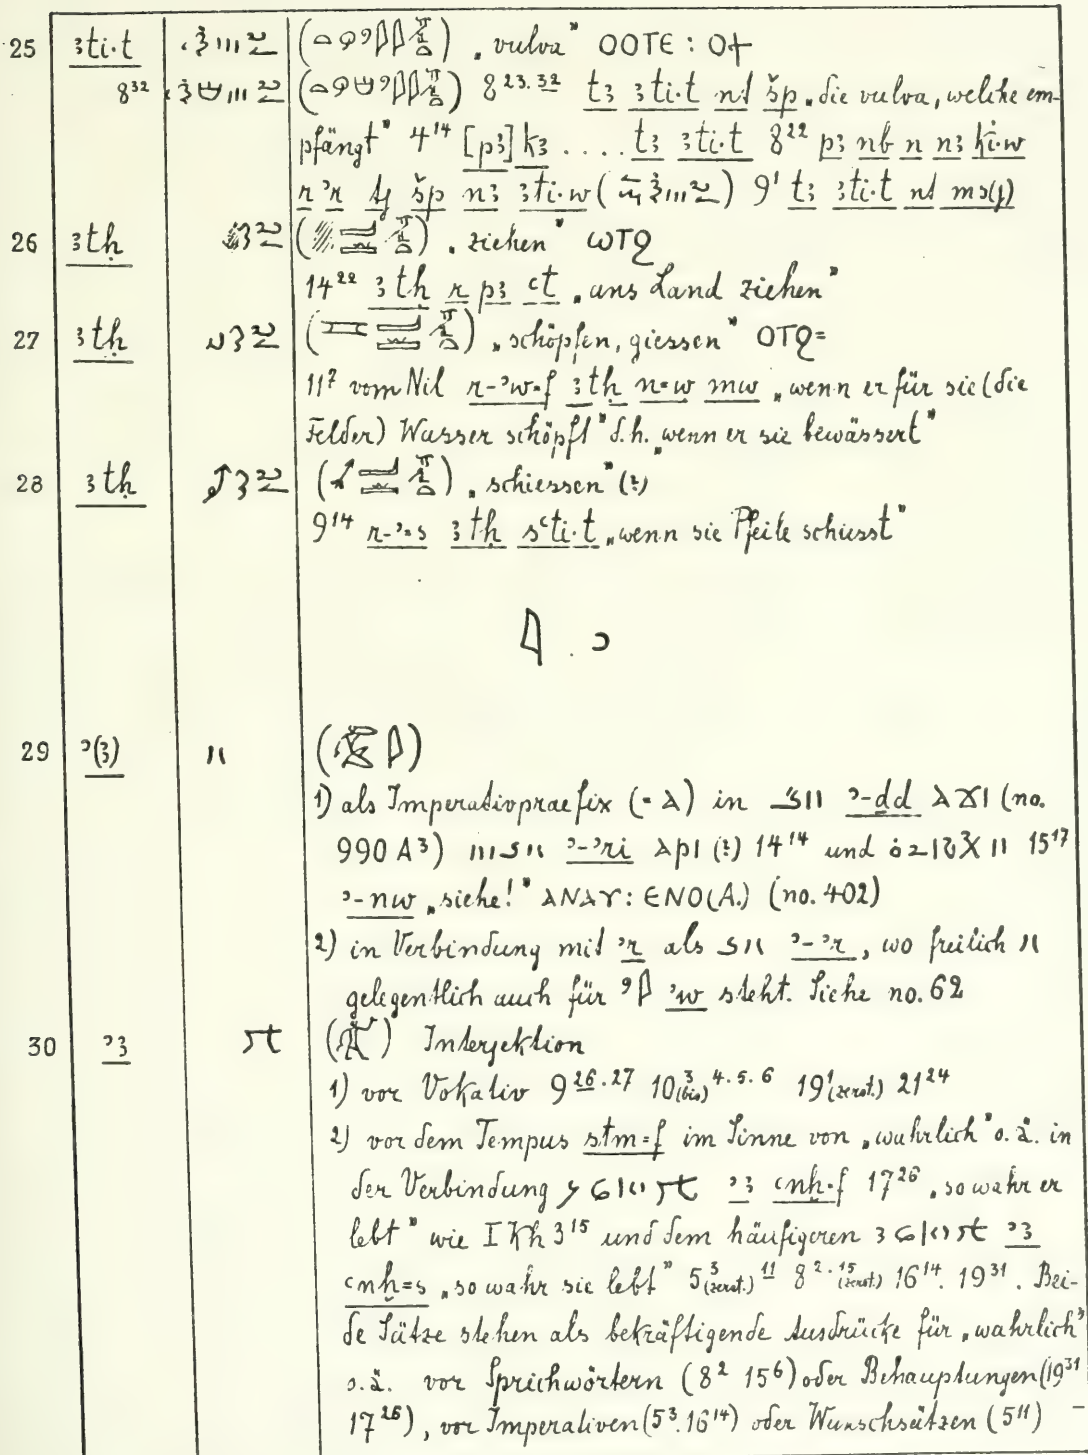 25 ꜣti·t „vulva" ΟΟΤΕ : Οϯ
8³² 8²³·³² tꜣ ꜣti·t nt šp „die vulva, welche em-
pfängt" 4¹⁴ [pꜣ] kꜣ .... tꜣ ꜣti·t 8²² pꜣ nb n nꜣ ki·w
šp nꜣ ꜣti·w 9¹ tꜣ ꜣti·t nt ms(j)
26 ꜣtḥ „ziehen" ωΤϨ
14²² ꜣtḥ r pꜣ ꜥt „ans Land ziehen"
27 ꜣtḥ „schöpfen, giessen" ΟΤϨ=
11⁷ vom Nil r-ʾw=f ꜣtḥ n=w mw „wenn er für sie (die
Felder) Wasser schöpft" d.h. „wenn er sie bewässert"
28 ꜣtḥ „schiessen" (?)
9¹⁴ r-ʾ=s ꜣtḥ sꜥti·t „wenn sie Pfeile schiesst"
𓇋 . ʾ
29 ʾ(ꜣ)
1) als Imperativpraefix (= ⲁ) in ʾ-dd ⲁϪⲓ (no.
990 A³) ʾ-ʾri ⲁⲣⲓ (?) 14¹⁴ und 15¹⁷
ʾ-nw „siehe!" ⲁⲛⲁⲩ : ⲉⲛⲟ (A.) (no. 402)
2) in Verbindung mit ʾr als ʾ-ʾr, wo freilich
gelegentlich auch für ʾw steht. Siehe no. 62
30 ʾꜣ Interjektion
1) vor Vokativ 9²⁶·²⁷ 10³(bis) ⁴·⁵·⁶ 19¹(zerst.) 21²⁴
2) vor dem Tempus stm=f im Sinne von „wahrlich" o. ä. in
der Verbindung ʾꜣ ꜥnḫ=f 17²⁶ „so wahr er
lebt" wie I Kh 3¹⁵ und dem häufigeren ʾꜣ
ꜥnḫ=s „so wahr sie lebt" 5³(zerst.) ¹¹ 8²·¹⁵(zerst.) 16¹⁴. 19³¹. Bei-
de Sätze stehen als bekräftigende Ausdrücke für „wahrlich"
o. ä. vor Sprichwörtern (8² 15⁶) oder Behauptungen (19³¹
17²⁶), vor Imperativen (5³. 16¹⁴) oder Wunschsätzen (5¹¹) –